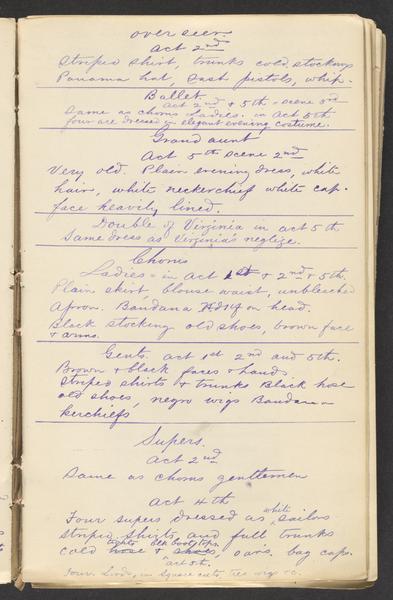 over seer
act 2nd
Striped shirt, trunks cold. stockings
Panama hat, sash pistols, whip.
Ballet.
act 2nd & 5th - scene 3rd
Same as chorus Ladies. in act 5th
four are dressed in elegant evening costume.
Grand aunt
Act 5th scene 2nd
Very old. Plain evening dress, white
hair, white neckerchief white cap.
face heavily lined.
Double of Virginia in act 5th
Same dress as Virginia's neglige.
Chorus
Ladies - in Act 1st & 2nd & 5th.
Plain skirt, blouse waist, unbleached
Apron. Bandana Hdkf on head.
Black stocking old shoes, brown face
& arms.
Gents. act 1st 2nd and 5th.
Brown & black faces & hands.
Striped shirts & trunks Black hose
old shoes, negro wigs Bandana
kerchiefs
Supers.
act 2nd
Same as chorus gentlemen
act 4th
Four supers dressed as white sailors
striped shirts, and full trunks
cold tights hose & shoes, oars. bag caps.
act 5th.
Four Lords, in square cuts, wigs &c.